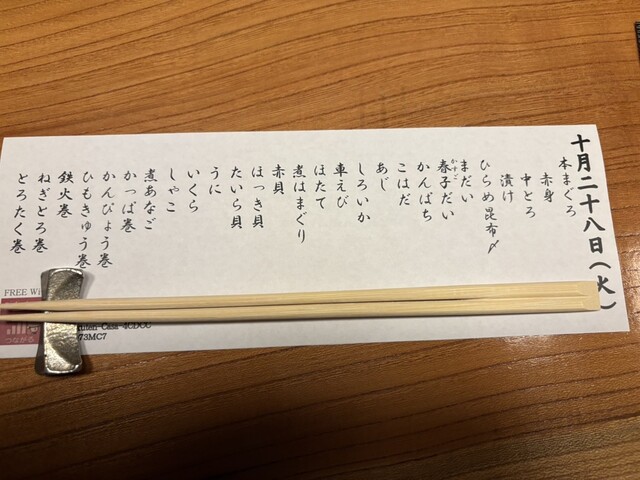 十月二十八日（火）
本まぐろ
赤身
中とろ
漬け
ひらめ昆布〆
まだい
春子だい
かすご
かんぱち
こはだ
あじ
しろいか
車えび
ほたて
煮はまぐり
赤貝
ほっき貝
たいら貝
うに
いくら
しゃこ
煮あなご
かっぱ巻
かんぴょう巻
ひもきゅう巻
鉄火巻
ねぎとろ巻
とろたく巻
FREE Wi
つながる
73MC7